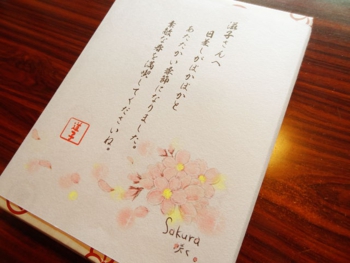 滋子さんへ
日差しがぽかぽかと
あたたかい季節になりました。
素敵な春を満喫してくださいね。
Sakura
咲く